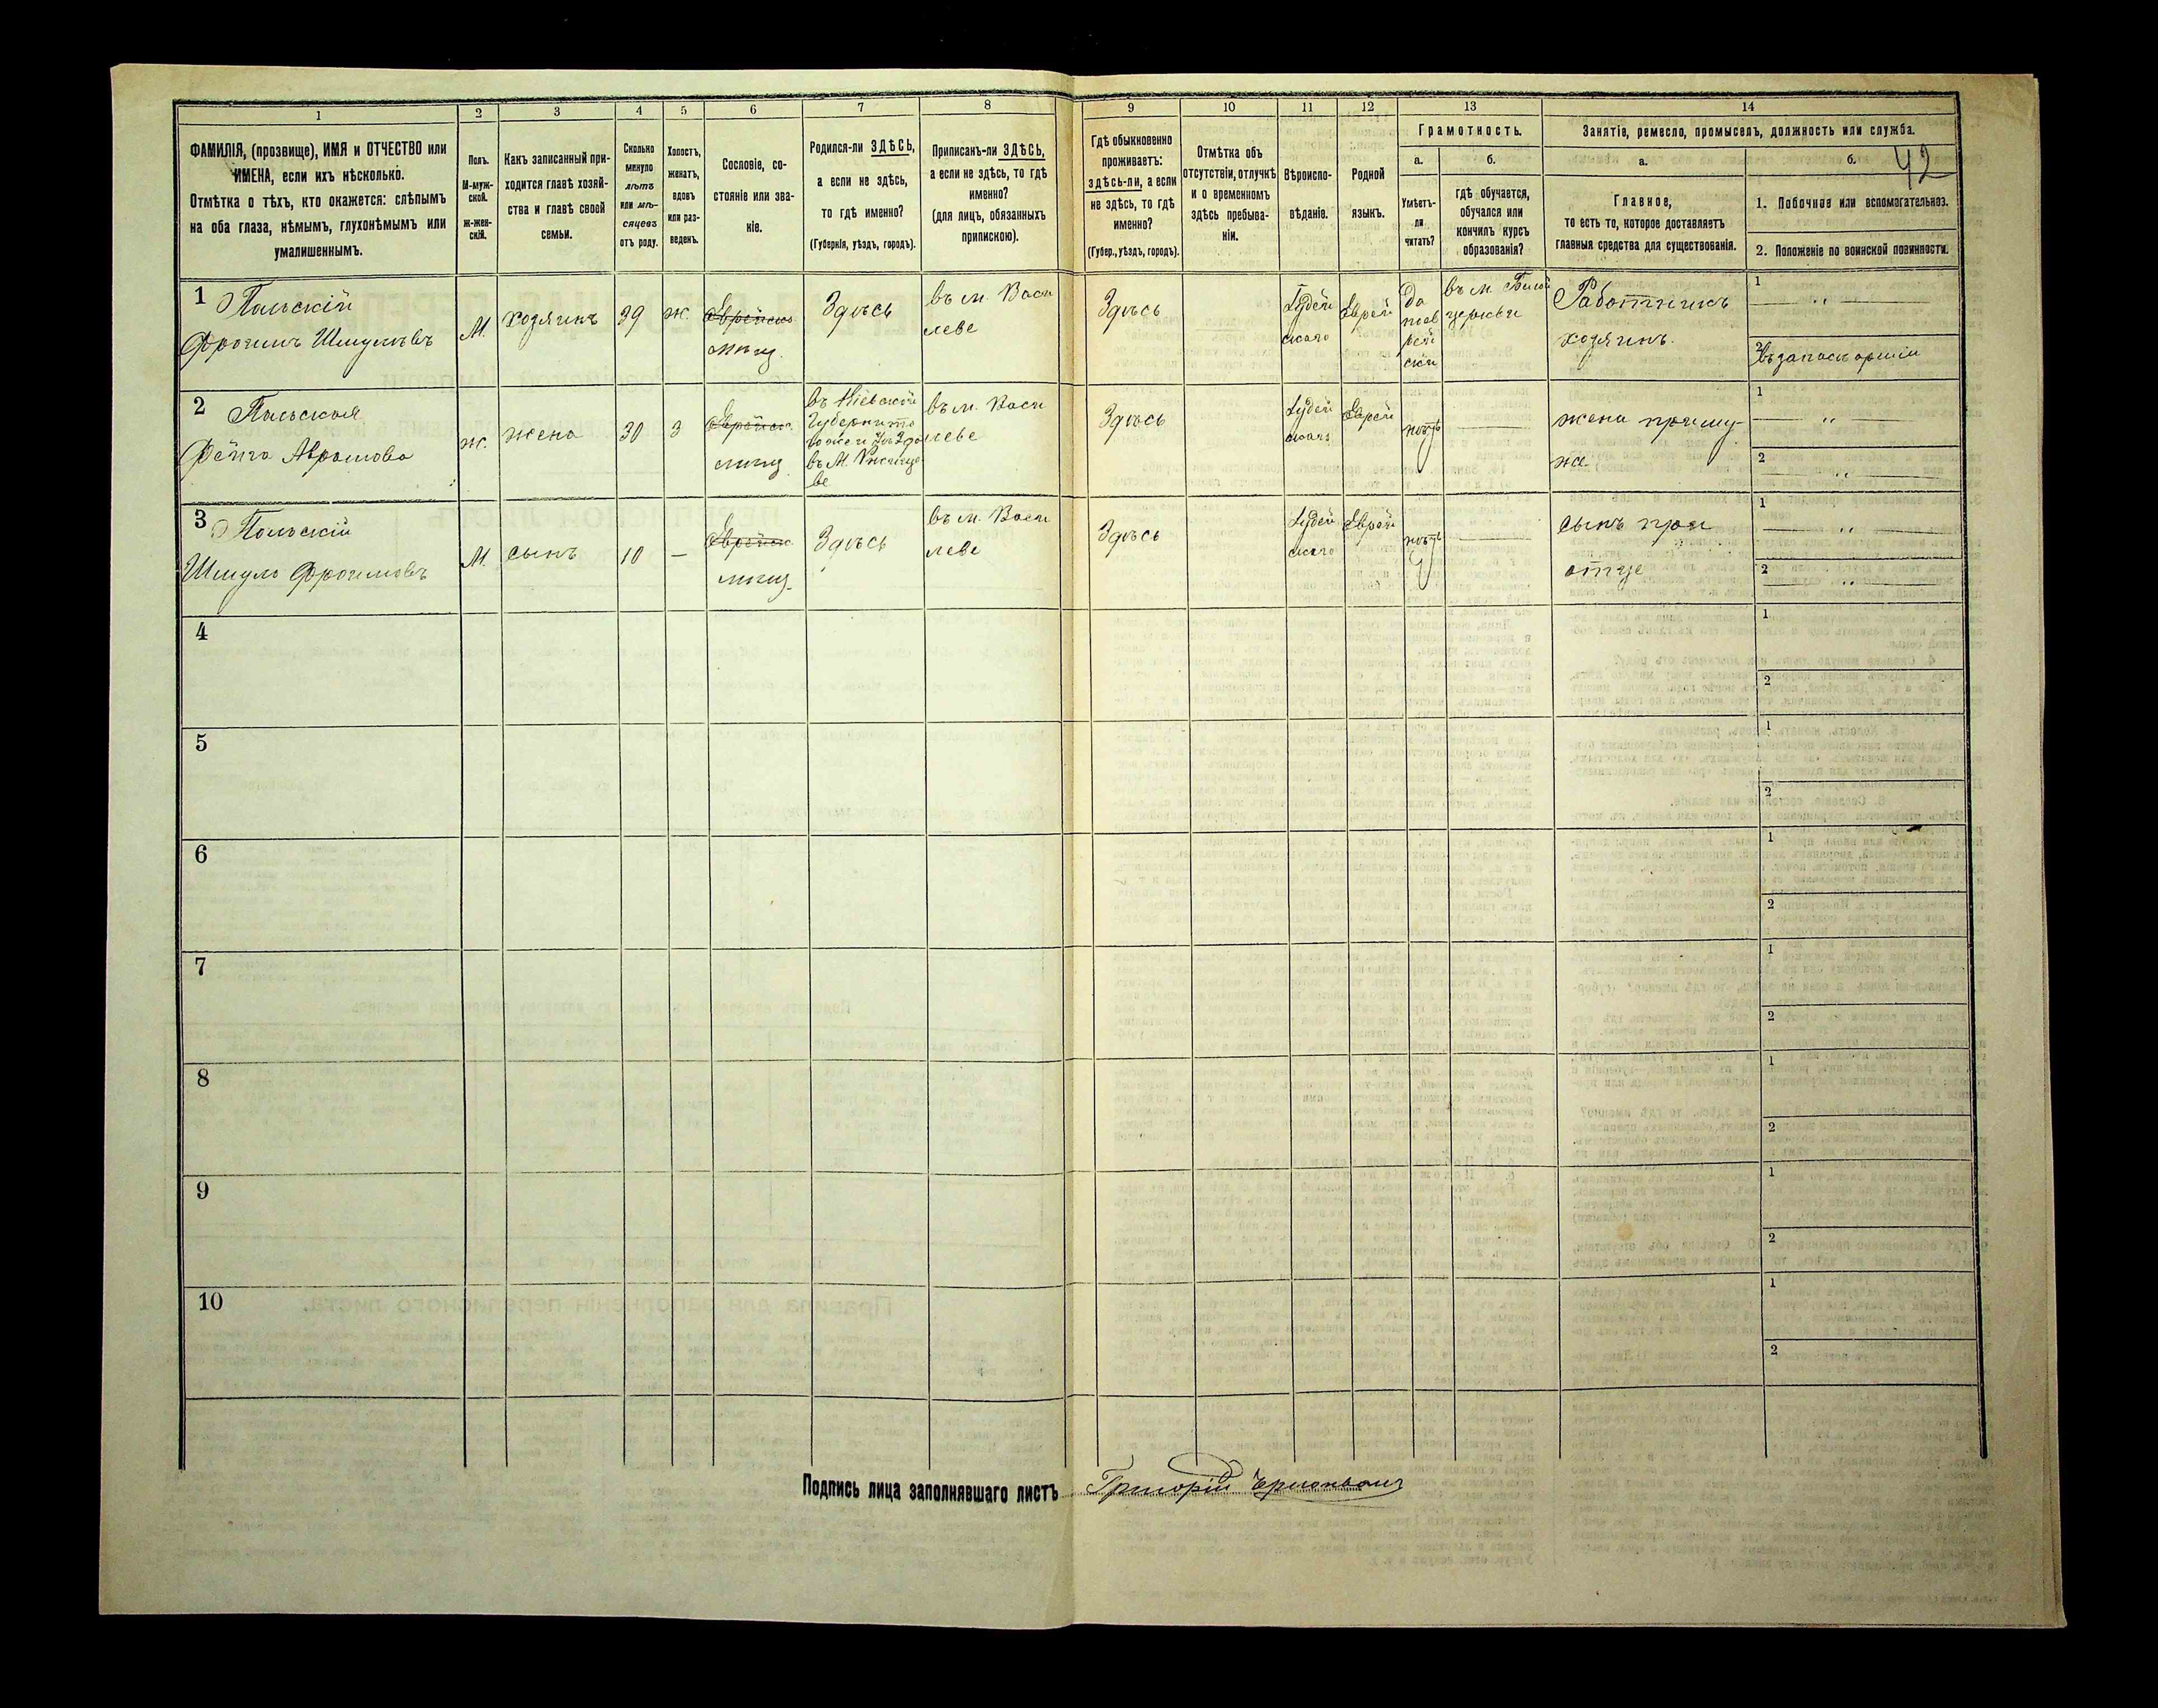 1 2 3 4 5 6 7 8 9 10 11 12 13 14
ФАМИЛІЯ, (прозвище), ИМЯ и ОТЧЕСТВО или
ИМЕНА, если ихъ нѣсколько.
Отмѣтка о тѣхъ, кто окажется: слѣпымъ
на оба глаза, нѣмымъ, глухонѣмымъ или
умалишеннымъ.
Полъ.
М-муж-
ской.
ж-жен-
скій.
Какъ записанный при-
ходится главѣ хозяй-
ства и главѣ своей
семьи.
Сколько
минуло
лѣтъ
или мѣ-
сяцевъ
отъ роду.
Холостъ,
женатъ,
вдовъ
или раз-
веденъ.
Сословіе, со-
стояніе или зва-
ніе.
Родился-ли ЗДѢСЬ,
а если не здѣсь,
то гдѣ именно?
(Губернія, уѣздъ, городъ).
Приписанъ-ли ЗДѢСЬ,
а если не здѣсь, то гдѣ
именно?
(для лицъ, обязанныхъ
припискою).
Гдѣ обыкновенно
проживаетъ:
здѣсь-ли, а если
не здѣсь, то гдѣ
именно?
(Губер., уѣздъ, городъ).
Отмѣтка объ
отсутствіи, отлучкѣ
и о временномъ
здѣсь пребыва-
ніи.
Вѣроиспо-
вѣданіе.
Родной
языкъ.
Грамотность.
а.
Умѣетъ-
ли
читать?
б.
гдѣ обучается,
обучался или
кончилъ курсъ
образованія?
Занятіе, ремесло, промыселъ, должность или служба.
а.
Главное,
то есть то, которое доставляетъ
главныя средства для существованія.
б.
42
1. Побочное или вспомогательное.
2. Положеніе по воинской повинности.
1
Польскій
Фроимъ Шмулевъ
М.
хозяинъ
39
ж.
Еврейско
мѣщ.
Здѣсь
въ м. Васи
леве
Здѣсь
Іудей
скаго
Еврей
въ м.
церкви
Работникъ
хозяинъ.
1
2 въ запасѣ арміи
2
Польская
Фейга Аврамова
ж.
жена
30
З
Еврейск
мѣщ
въ Кіевской
Губерніи
въ м.
ве
въ м. Васи
леве
Здѣсь
Іудей
скаго
Еврей
нѣтъ
жена при му-
же
1
2
3
Польскій
Шмуло Фроимовъ
М.
сынъ
10
—
Еврейск
мѣщ
Здѣсь
въ м. Васи
леве
Здѣсь
Іудей
скаго
Еврей
нѣтъ
сынъ при
отце
1
2
4
1
2
5
1
2
6
1
2
7
1
2
8
1
2
9
1
2
10
1
2
Подпись лица заполнявшаго листъ Григорій